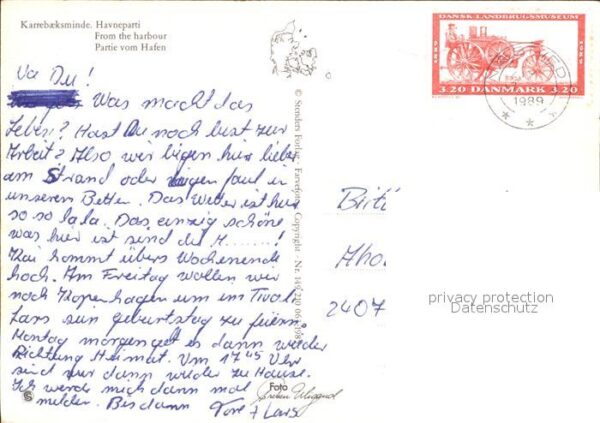 Karrebæksminde. Havneparti
From the harbour
Partie vom Hafen
DANSK LANDBRUGSMUSEUM
3.20 DANMARK 3.20
1989
Du!
Was macht das
Leben? Hast Du noch lust zur
Arbeit? Also, wir ligen hier lieber
am Strand oder ligen faul in
unseren Betten. Das Wetter ist hier
so so la la. Das einzig schöne
was hier ist sind die M......!
Kai kommt übers Wochenende
hoch. Am Freitag wollen wir
noch Kopenhagen um im Tivoli
Lars sein geburtstag zu feiern.
Montag morgen get es dann wieder
Richtung Heimat. Um 17 45 Uhr
sind wir dann wieder zu Hause.
Ich werde mich dann mal
melden. Bis dann Tore + Lars
© Stenders Forlag - Farvefoto - Copyright - Nr.
Foto
Birti
Aho.
2407
privacy protection
Datenschutz